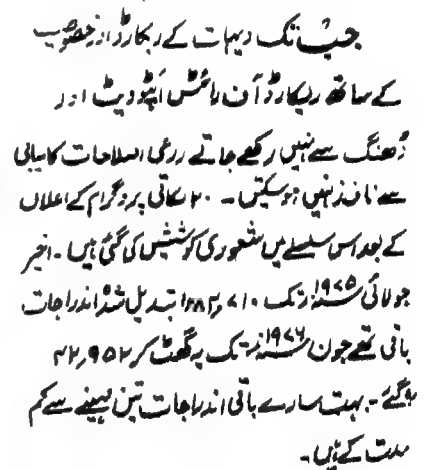 جب تک دیہات کے ریکارڈ اور خصوصیت
کے ساتھ ریکارڈ آف رائٹس اَپٹوڈیٹ اور
ڈھنگ سے نہیں رکھے جاتے زرعی اصلاحات کامیابی
سے نافذ نہیں ہو سکتیں۔ ۲۰ نکاتی پروگرام کے اعلان
کے بعد اس سلسلے میں شعوری کوششیں کی گئی ہیں۔ اخیر
جولائی ۱۹۷۵ء تک تبدیل شدہ اندراجات
باقی تھے جون ۱۹۷۶ء تک یہ گھٹ کر ۴۲٫۹۵۲
ہو گئے۔ بہت سارے باقی اندراجات تین مہینے سے کم
مدت کے ہیں۔